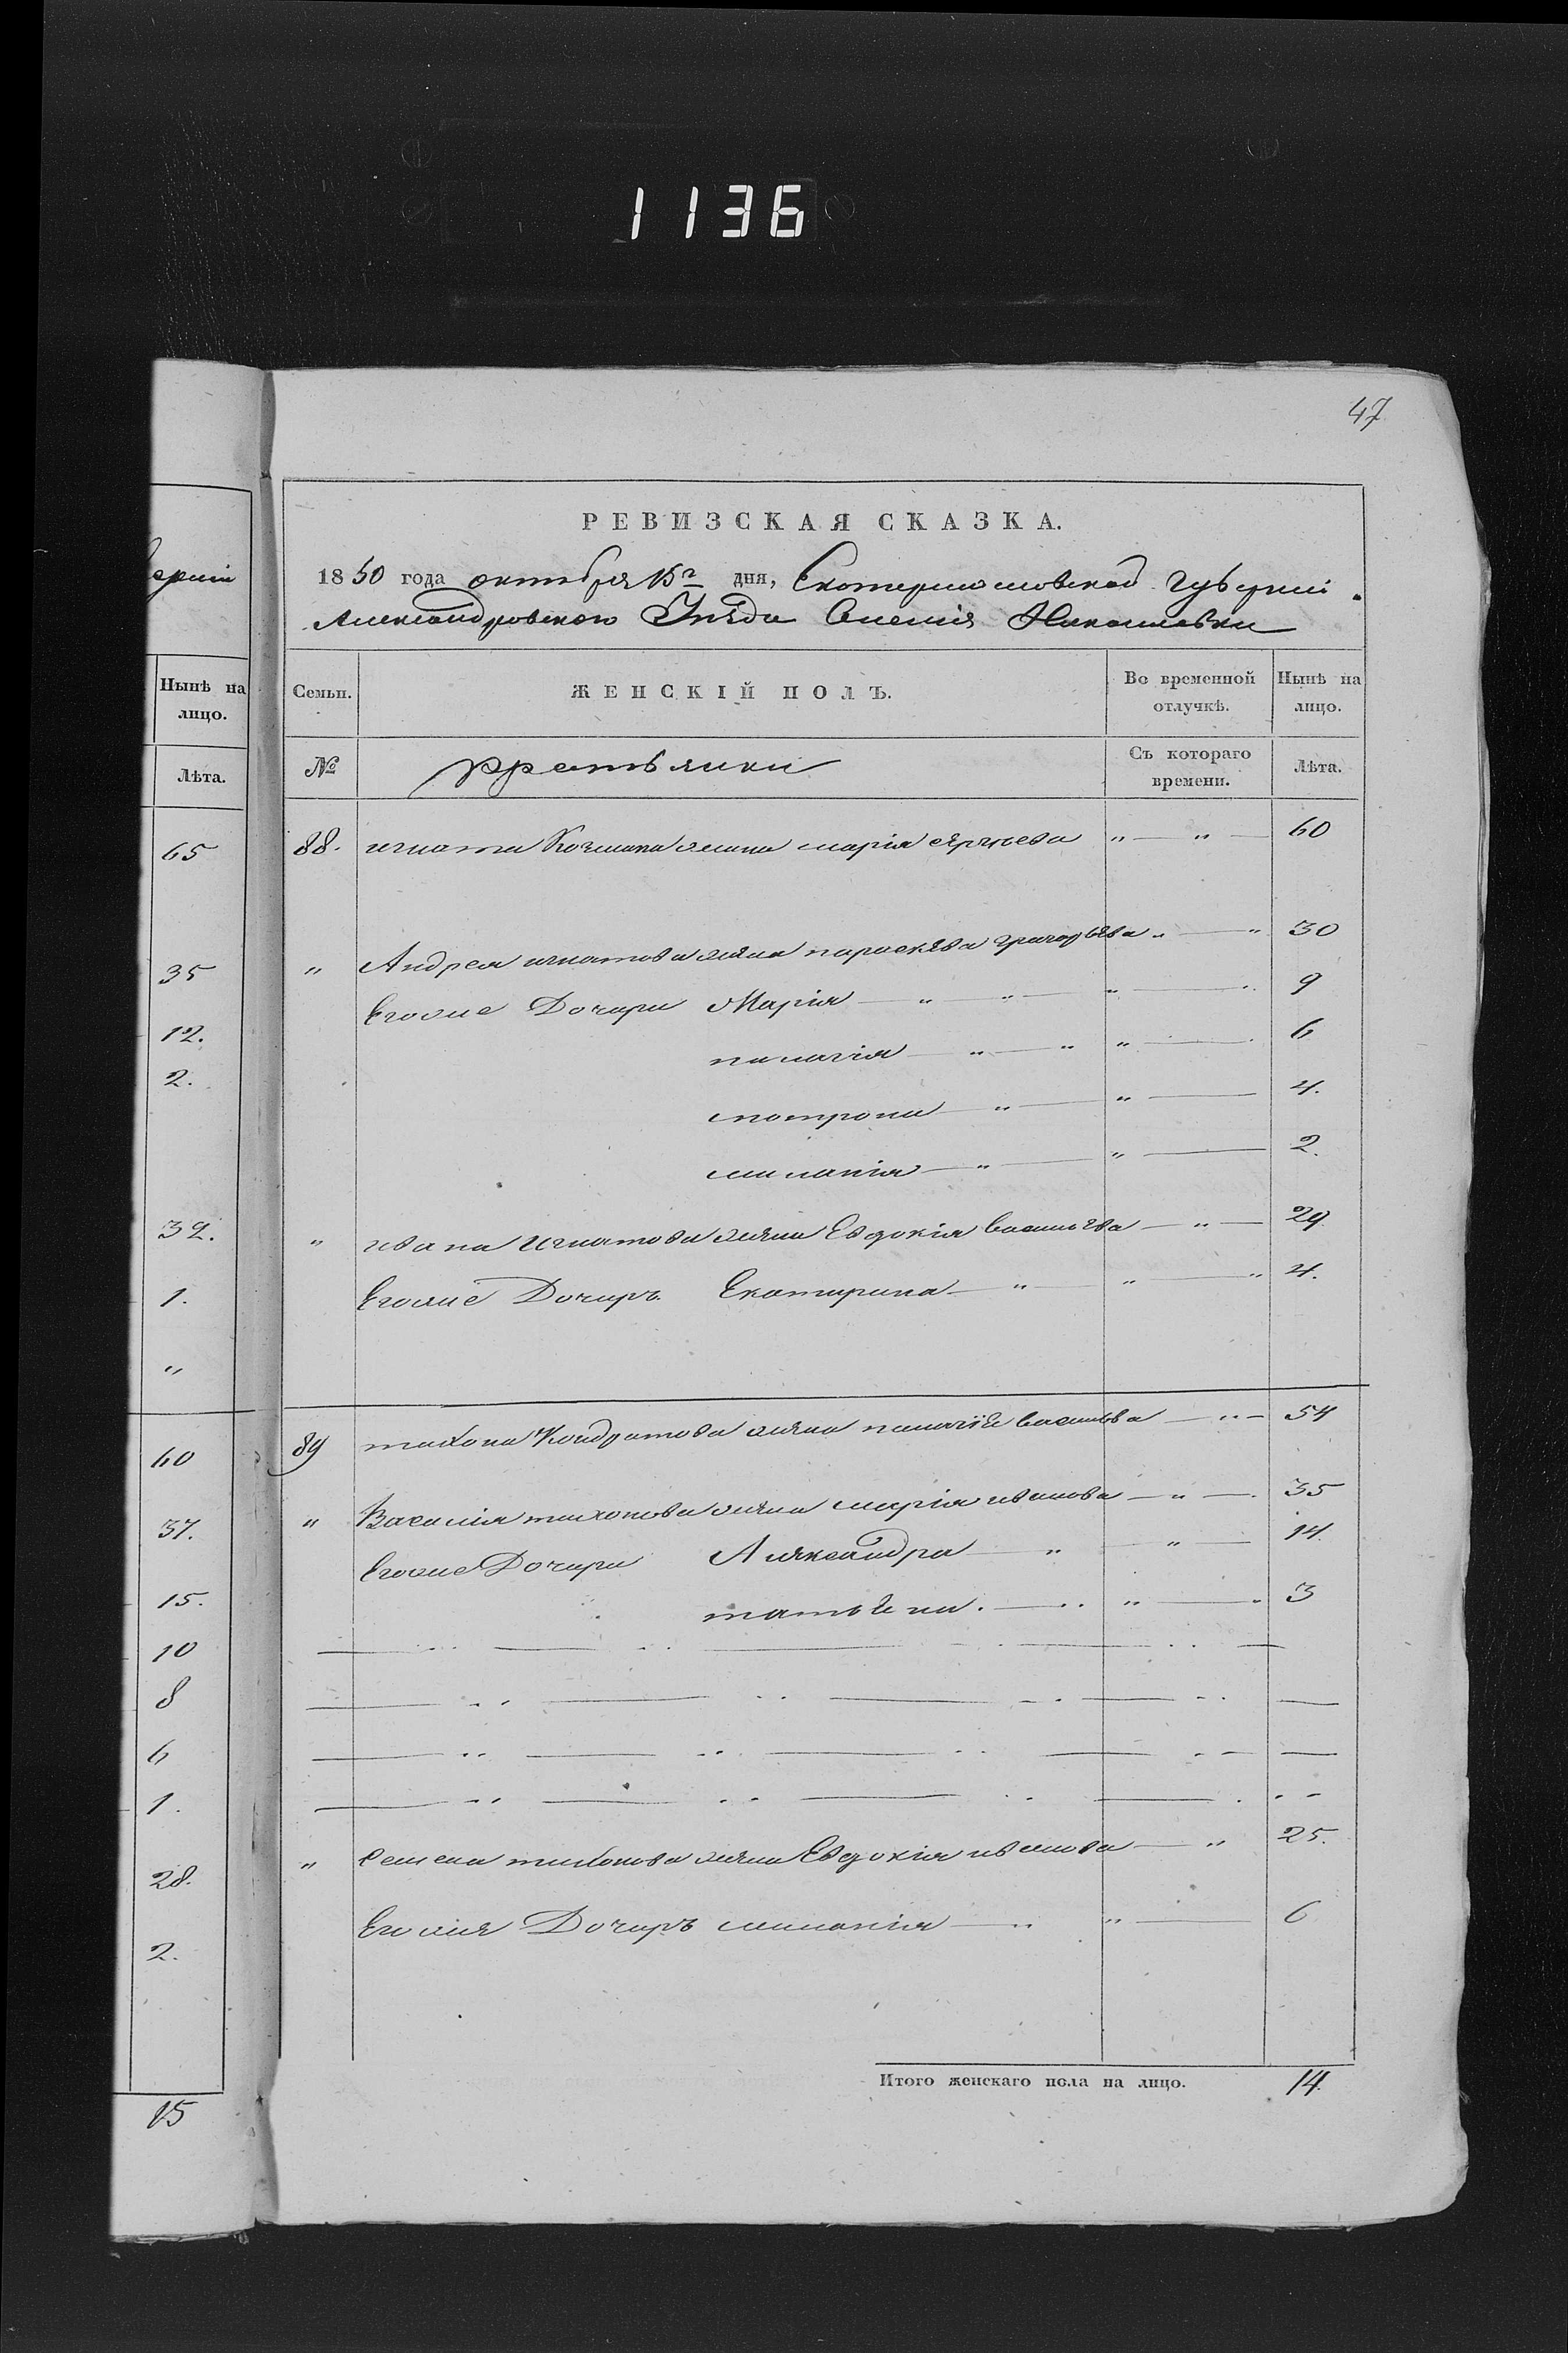 1136
47
РЕВИЗСКАЯ СКАЗКА.
1850 года октября 15го дня, Екатеринославской Губерніи
Александровского Уезда Николаевки
Семьи. ЖЕНСКІЙ ПОЛЪ. Во временной отлучкѣ. Нынѣ на лицо.
№ Съ котораго времени. Лѣта.
88. игната жена марія 60
" Андрея игнатова жена параскева григорьева " " 30
Егоже Дочери Марія " " " 9
палагія " " " 6
мотрона " " 4.
миланія " " 2.
" ивана игнатова жена Евдокія васильева " 29
Егоже Дочеръ Екатирина " " " 4.
89 тихона Кондратова жена васильева " 54
" Василія тихонова жена марія иванова " 35
Егоже Дочери Александра " " 14.
татьяна. " " 3
" Семена тихонова жена Евдокія " 25.
Егожя Дочеръ миланія " " 6
Итого женскаго пола на лицо. 14.
ерніи
Нынѣ на
лицо.
Лѣта.
65
35
12.
2.
32.
1.
"
60
37.
15.
10
8
6
1.
28.
2.
15